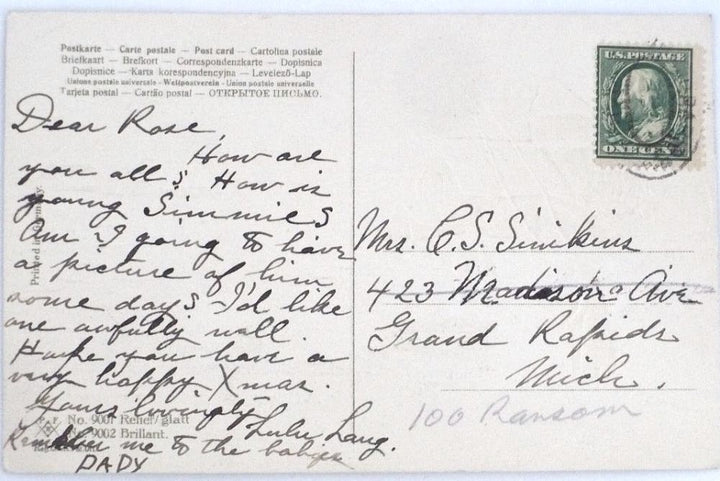 Postkarte — Carte postale — Post card — Cartolina postale
Briefkaart — Brefkort — Correspondenzkarte — Dopisnica
Dopisnice — Karta korespondencyjna — Levelező-Lap
Union postale universelle - Weltpostverein - Union postale universelle
Tarjeta postal — Cartão postal — ОТКРЫТОЕ ПИСЬМО.
U.S. POSTAGE
ONE CENT
Dear Rose,
How are
you all? How is
young Simmie?
Am I going to have
a picture of him
some day? I'd like
one awfully well.
Hope you have a
very happy Xmas.
Yours lovingly
Lulu Lang.
Remember me to the babys
DADY
Printed in Germany.
No. 9001 Relief/glatt
No. 9002 Brillant.
Mrs. C. S. Simkins
423 Madison Ave
Grand Rapids
Mich.
100 Ransom